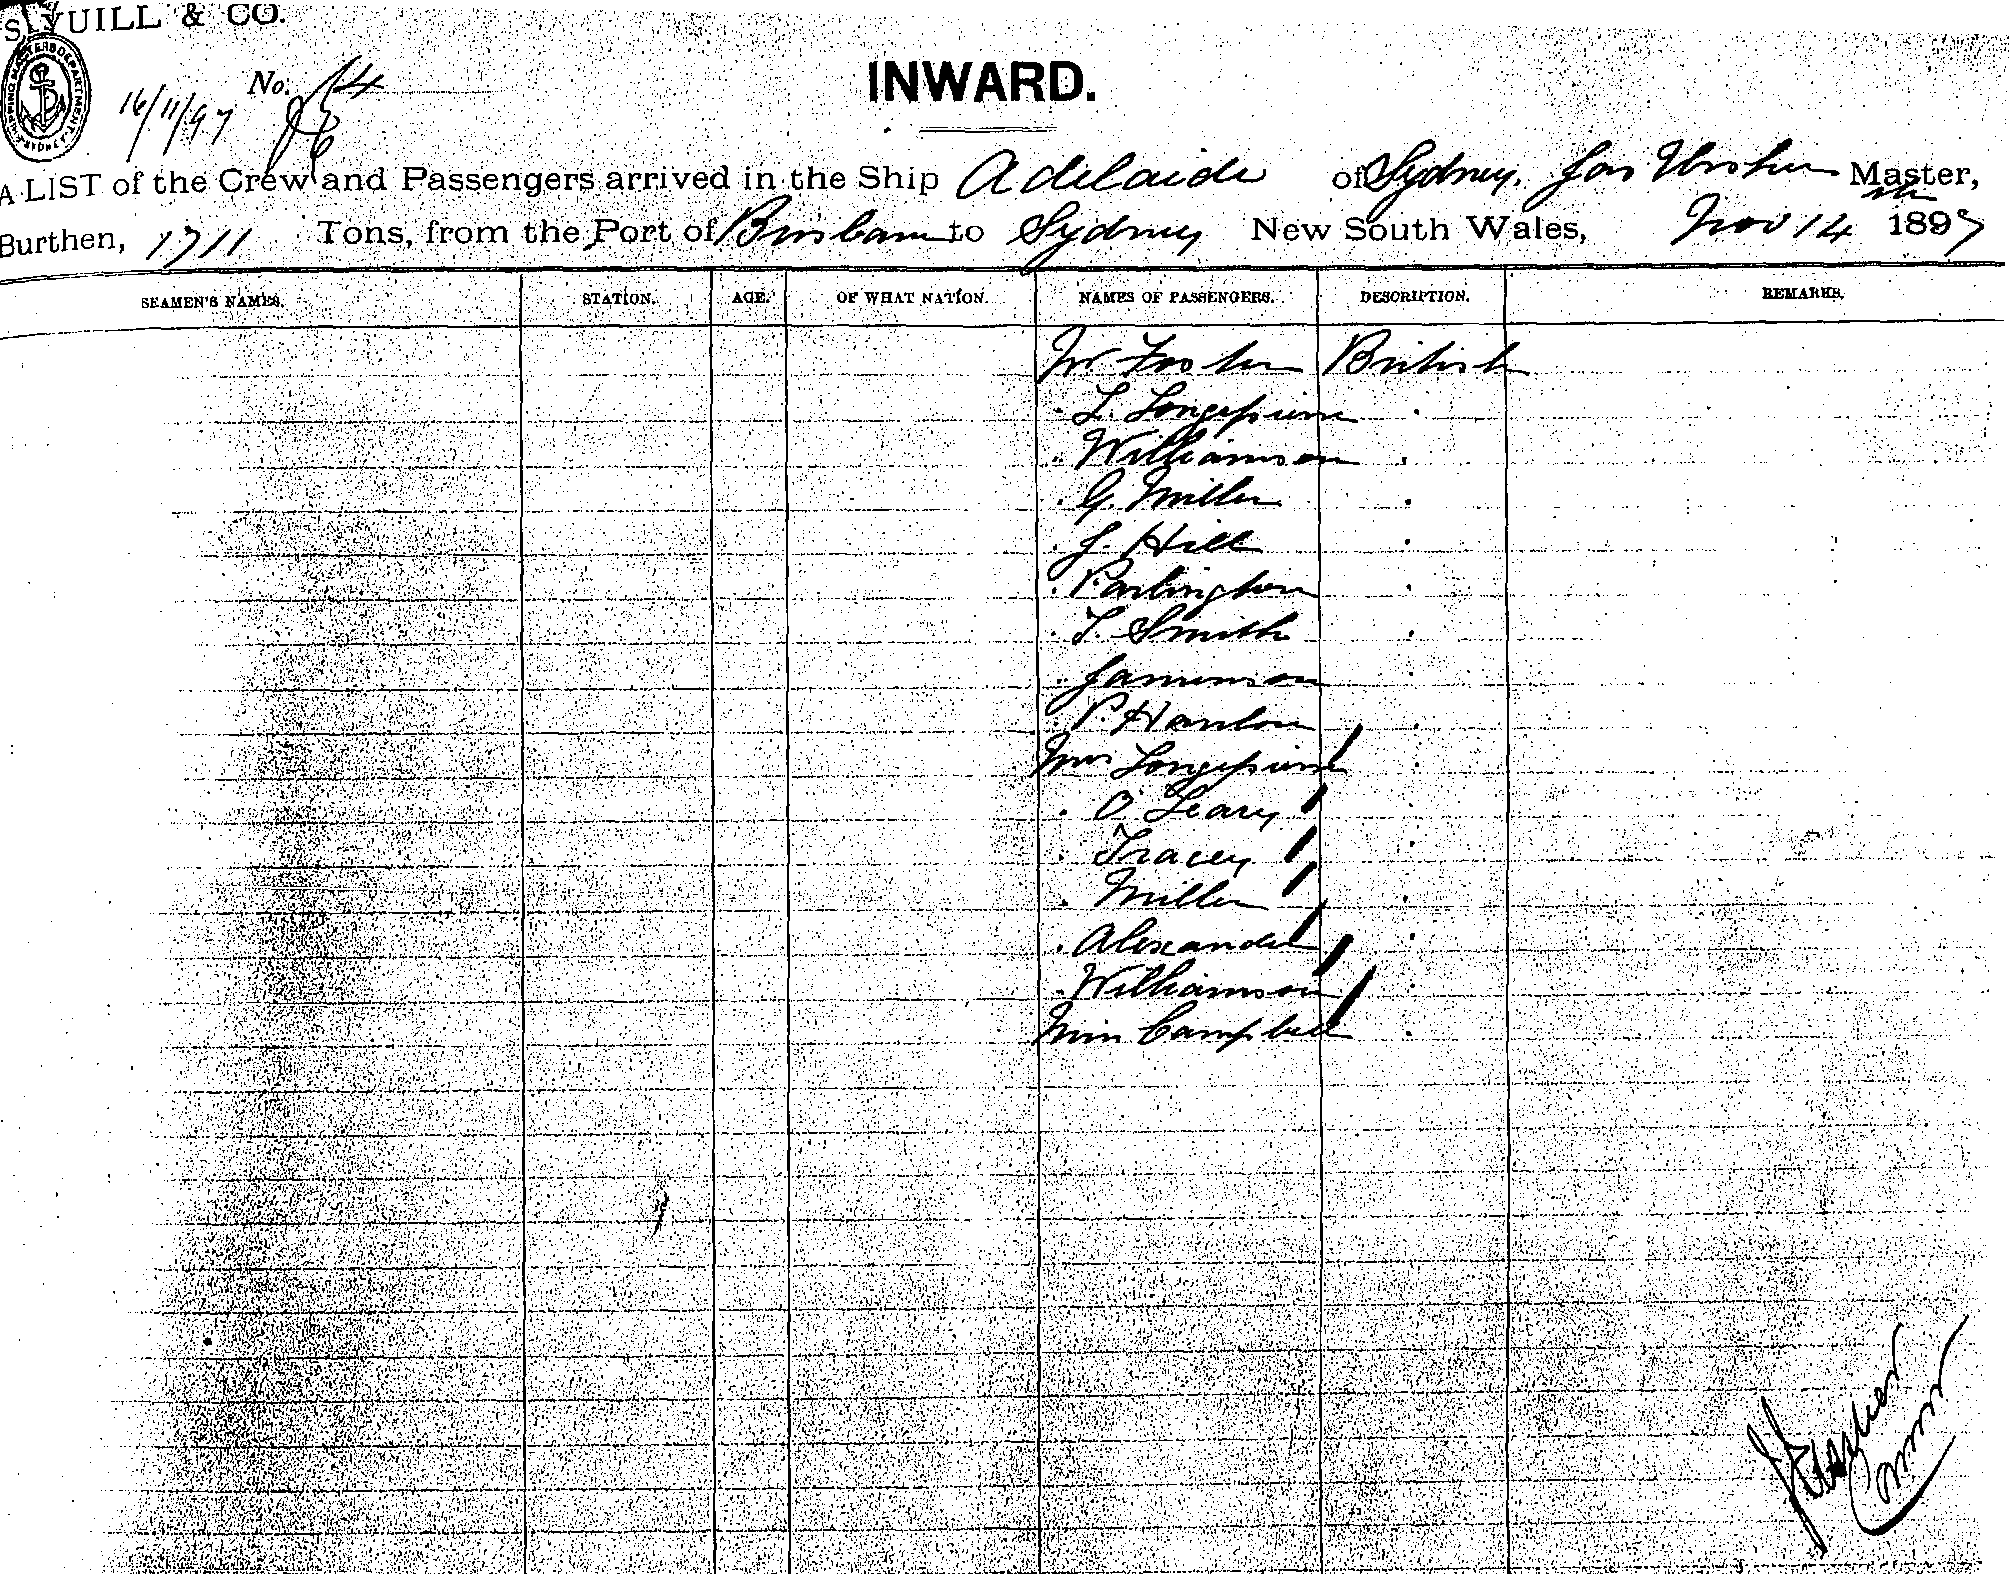 S. YUILL & CO.
SHIPPING MASTERS DEPARTMENT SYDNEY
16/11/97 No. 14
INWARD.
A LIST of the Crew and Passengers arrived in the Ship Adelaide of Sydney, Jas Master,
Burthen, 1711 Tons, from the Port of Brisbane to Sydney New South Wales, Nov 14th 1897
SEAMEN'S NAMES. STATION. AGE. OF WHAT NATION. NAMES OF PASSENGERS. DESCRIPTION. REMARKS.
Mr Foster British
" L. Longepierre "
" Williamson "
" G. Miller "
" J. Hill "
" Partington "
" T. Smith "
" Jamieson "
" P. Hanlon "
Mrs Longepierre "
" O'Leary "
" Tracey "
" Miller "
" Alexander "
" Williamson "
Miss Campbell "